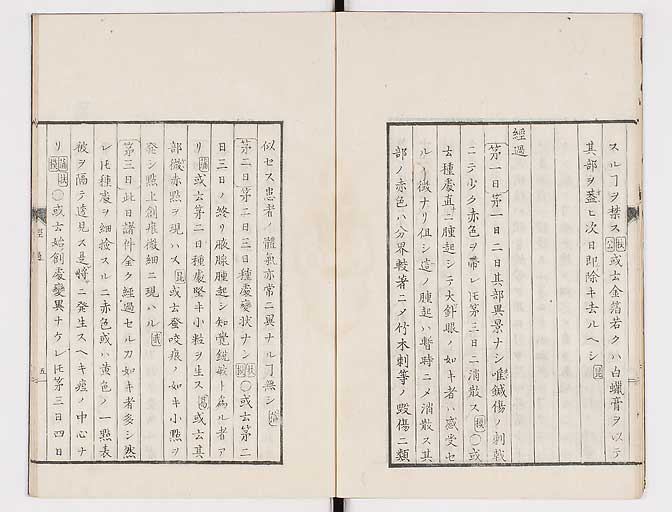 スルヿヲ禁ス 或云金箔若クハ白蠟膏ヲ以テ
其部ヲ蓋ヒ次日即除キ去ルヘシ
經過
第一日 第一日二日其部異景ナシ唯鍼傷ノ刺戟
ニテ少ク赤色ヲ帶レ𪜈第三日ニ消散ス 〇或
云種處直ニ腫起シテ大針眼ノ如キ者ハ感受セ
ルノ徴ナリ但シ這ノ腫起ハ暫時ニメ消散ス其
部ノ赤色ハ分界較著ニメ竹木刺等ノ毀傷ニ類
似セス患者ノ體氣亦常ニ異ナルヿ無シ
第二日 第二日三日種處變狀ナシ 〇或云第二
日三日ノ終リ腋腺腫起シ知覺鋭敏ト爲ル者ア
リ 或云第二日種處堅キ小粒ヲ生ス 或云其
部微赤點ヲ現ハス 或云蚤咬痕ノ如キ小點ヲ
發シ點上創痕微細ニ現ハル
第三日 此日諸件全ク經過セル力如キ者多シ然
レ𪜈種處ヲ細撿スルニ赤色或ハ黄色ノ一點表
被ヲ隔テ透見ス是將ニ發生スヘキ痘ノ中心ナ
リ 〇或云始創處變異ナケレ𪜈第三日四日
五